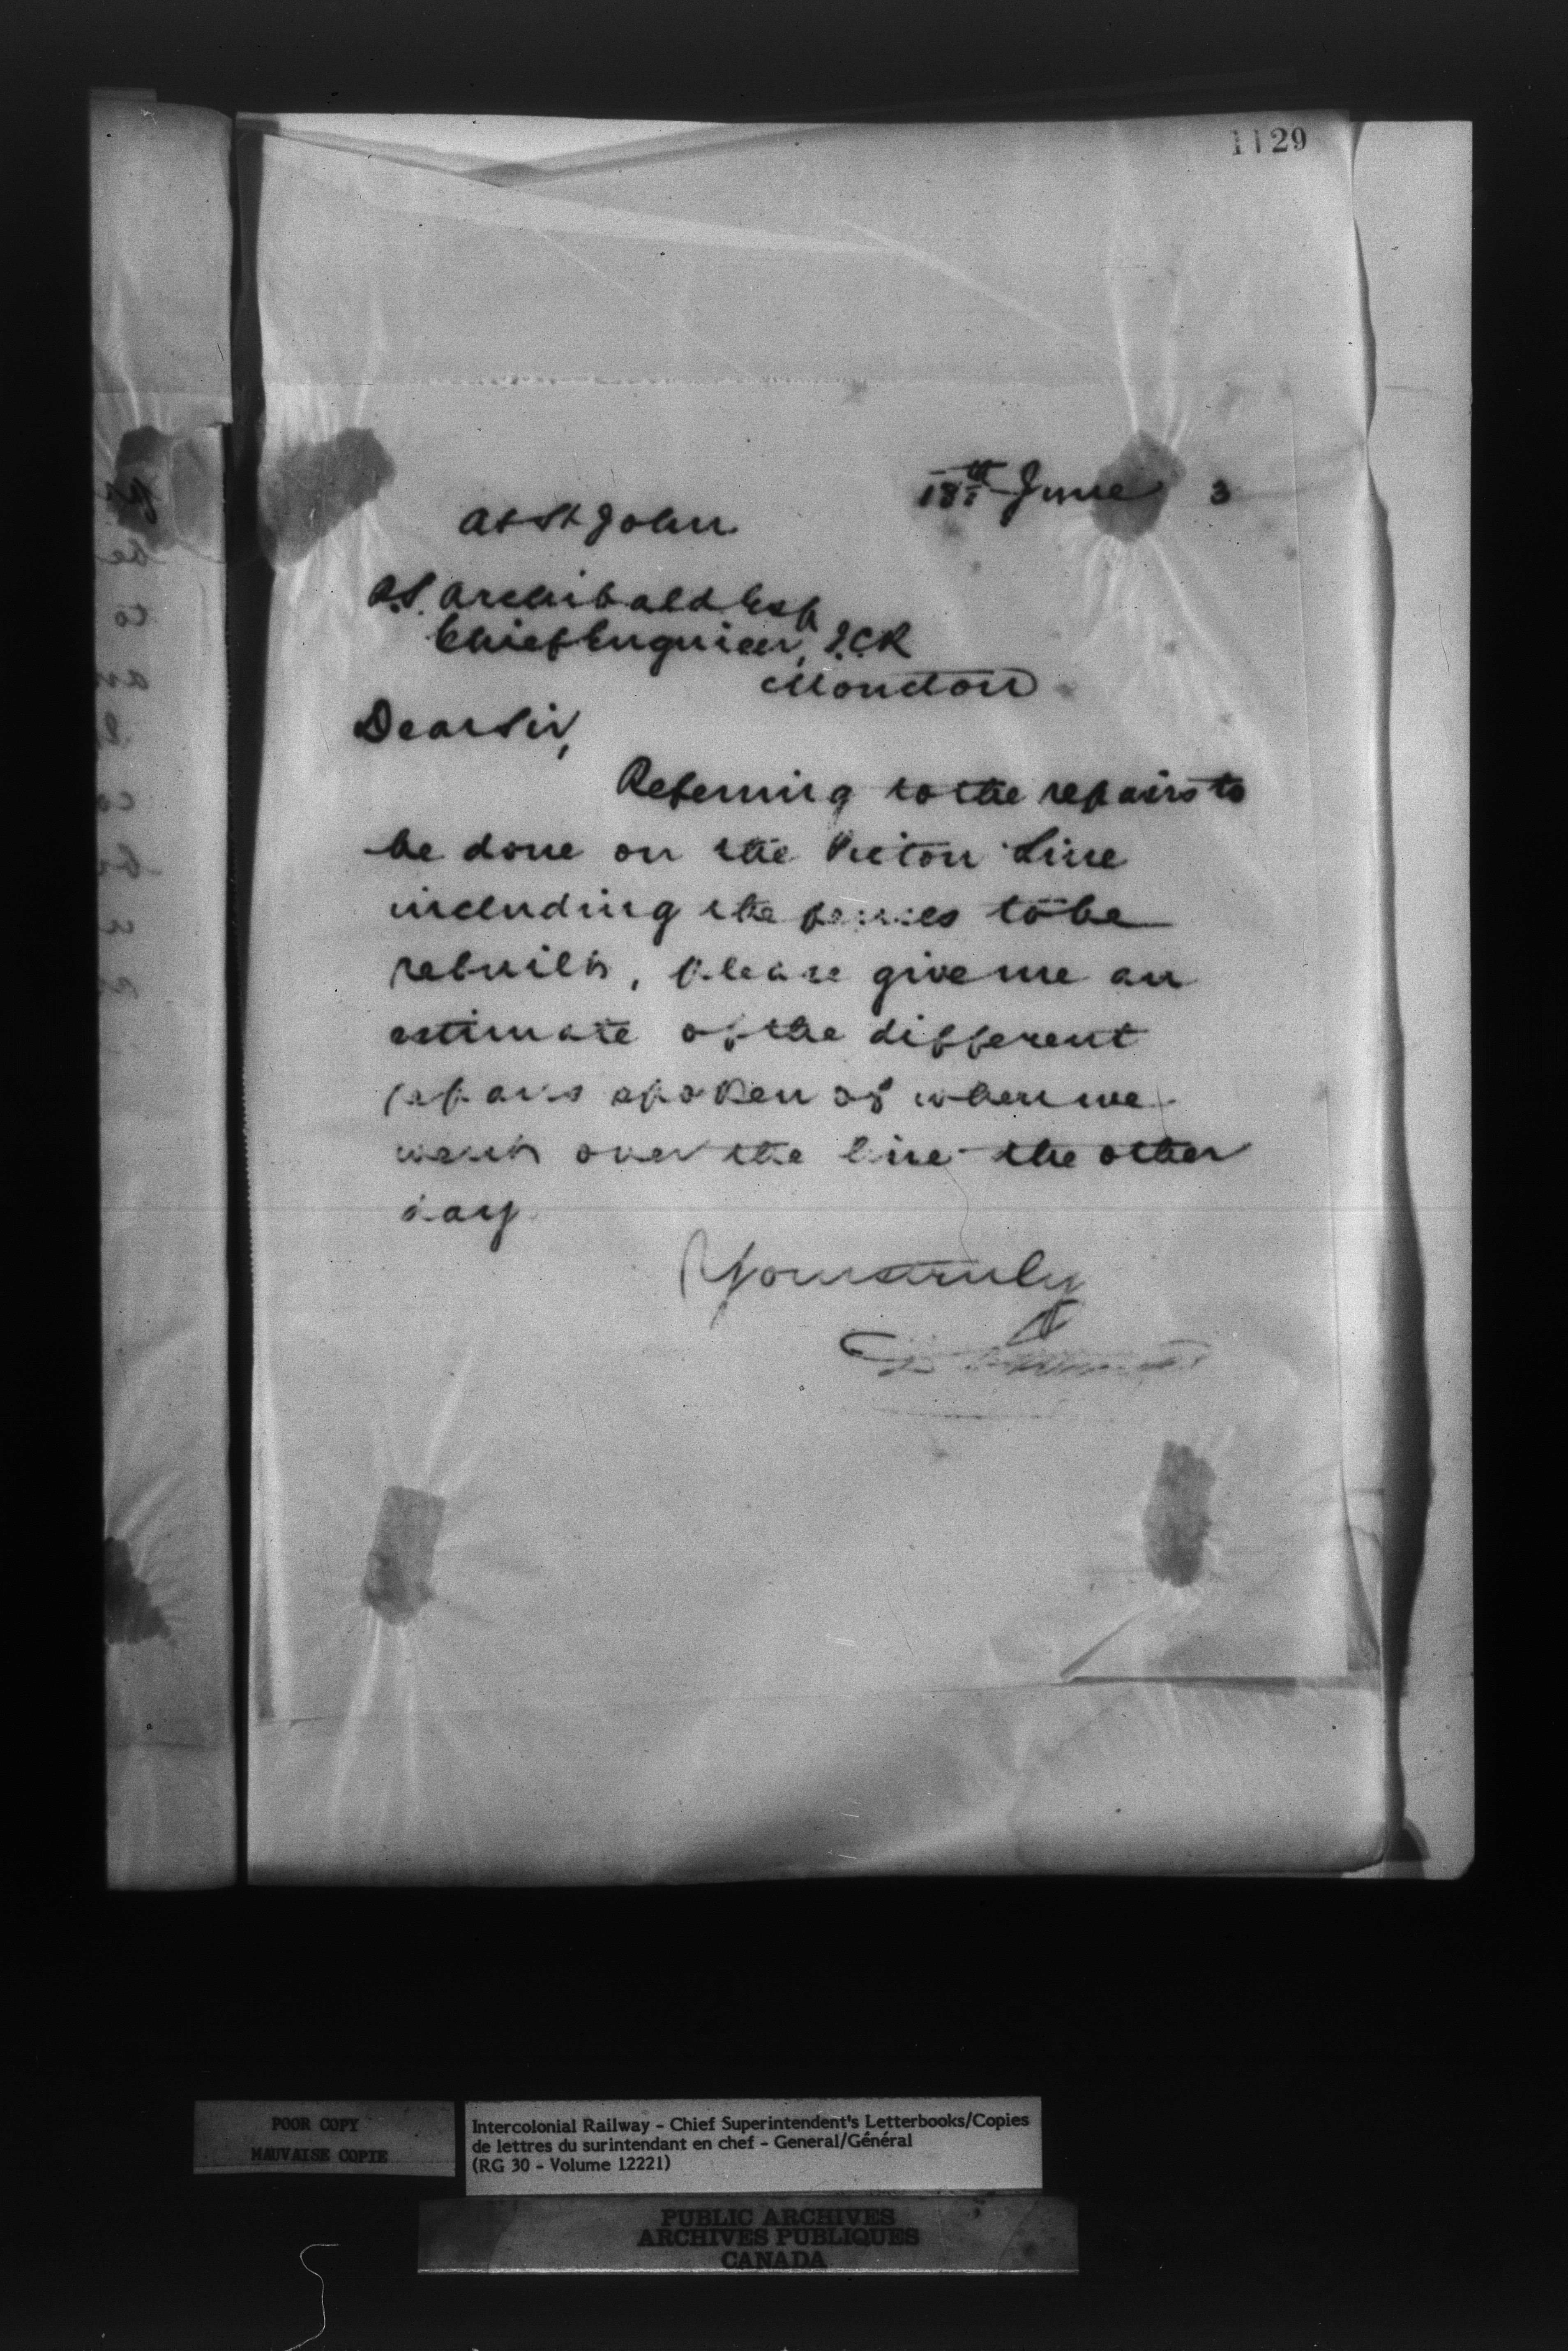 1129
18th June 3
At St John
P.S. Archibald Esq
Chief Engineer, I.C.R
Moncton
Dear Sir,
Referring to the repairs to
be done on the Pictou Line
including the fences to be
rebuilt, please give me an
estimate of the different
repairs spoken of when we
went over the line the other
day
Yours truly
POOR COPY
MAUVAISE COPIE
Intercolonial Railway - Chief Superintendent's Letterbooks/Copies
de lettres du surintendant en chef - General/Général
(RG 30 - Volume 12221)
PUBLIC ARCHIVES
ARCHIVES PUBLIQUES
CANADA